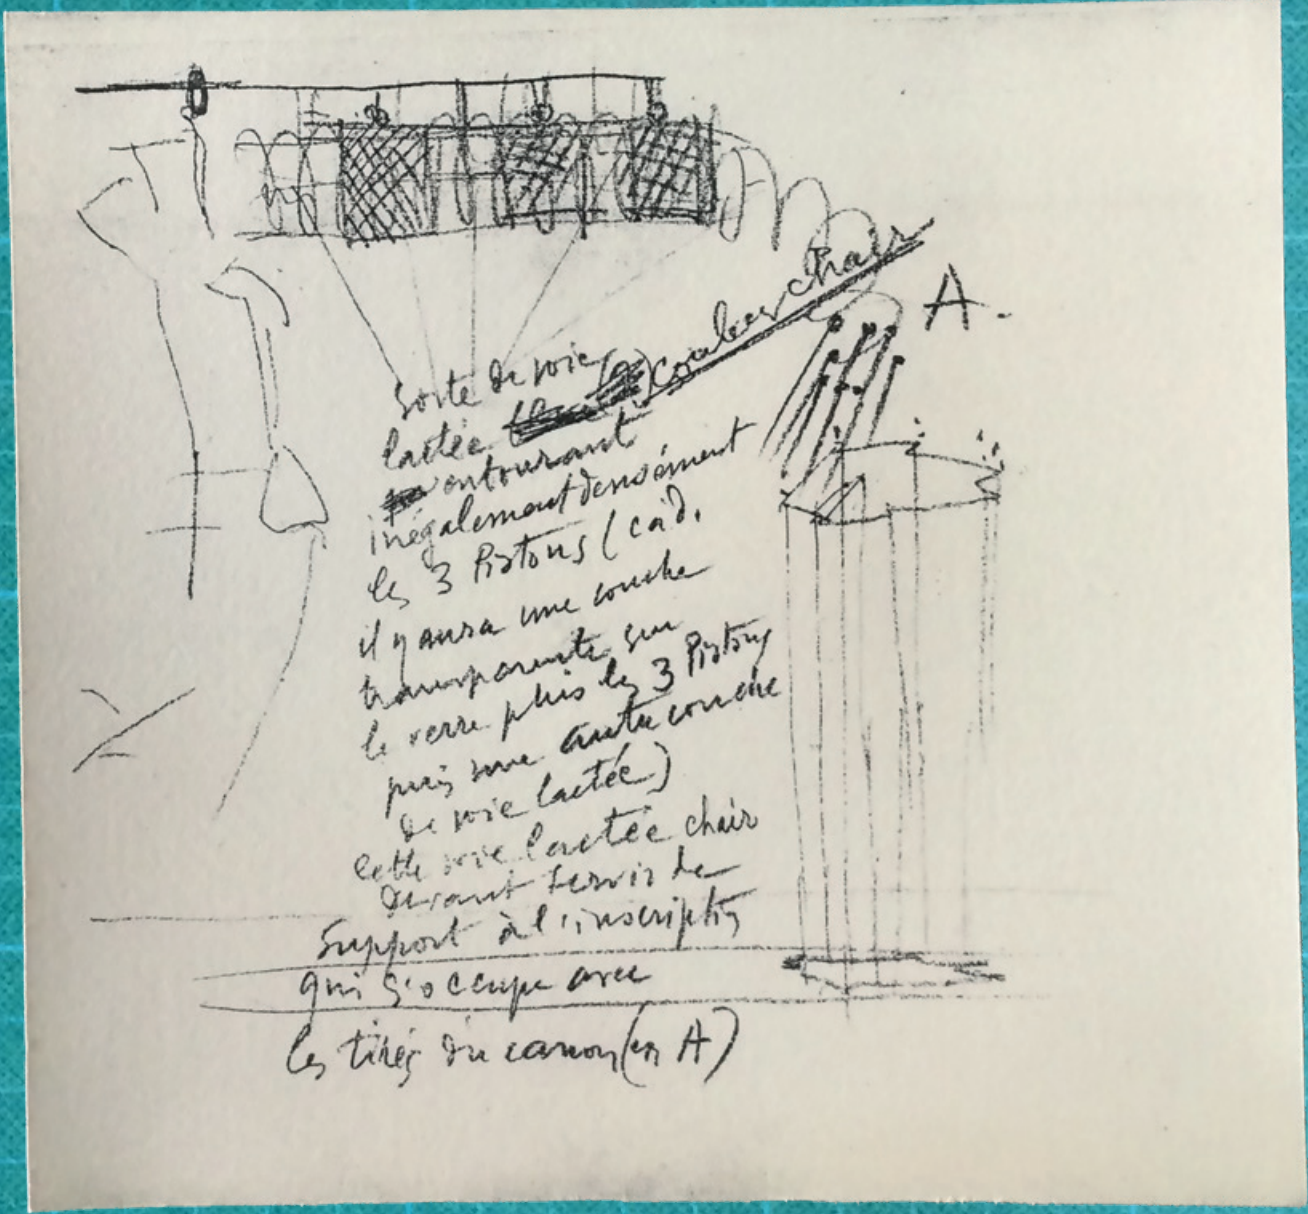 A.
Sorte de voie
lactée couleur chair
entourant
inégalement densément
les 3 Pistons (càd.
il y aura une couche
transparente sur
le verre puis les 3 Pistons
puis une autre couche
de voie lactée)
Cette voie lactée chair
devant servir de
support à l'inscription
qui s'occupe avec
les tirés du canon (en A)